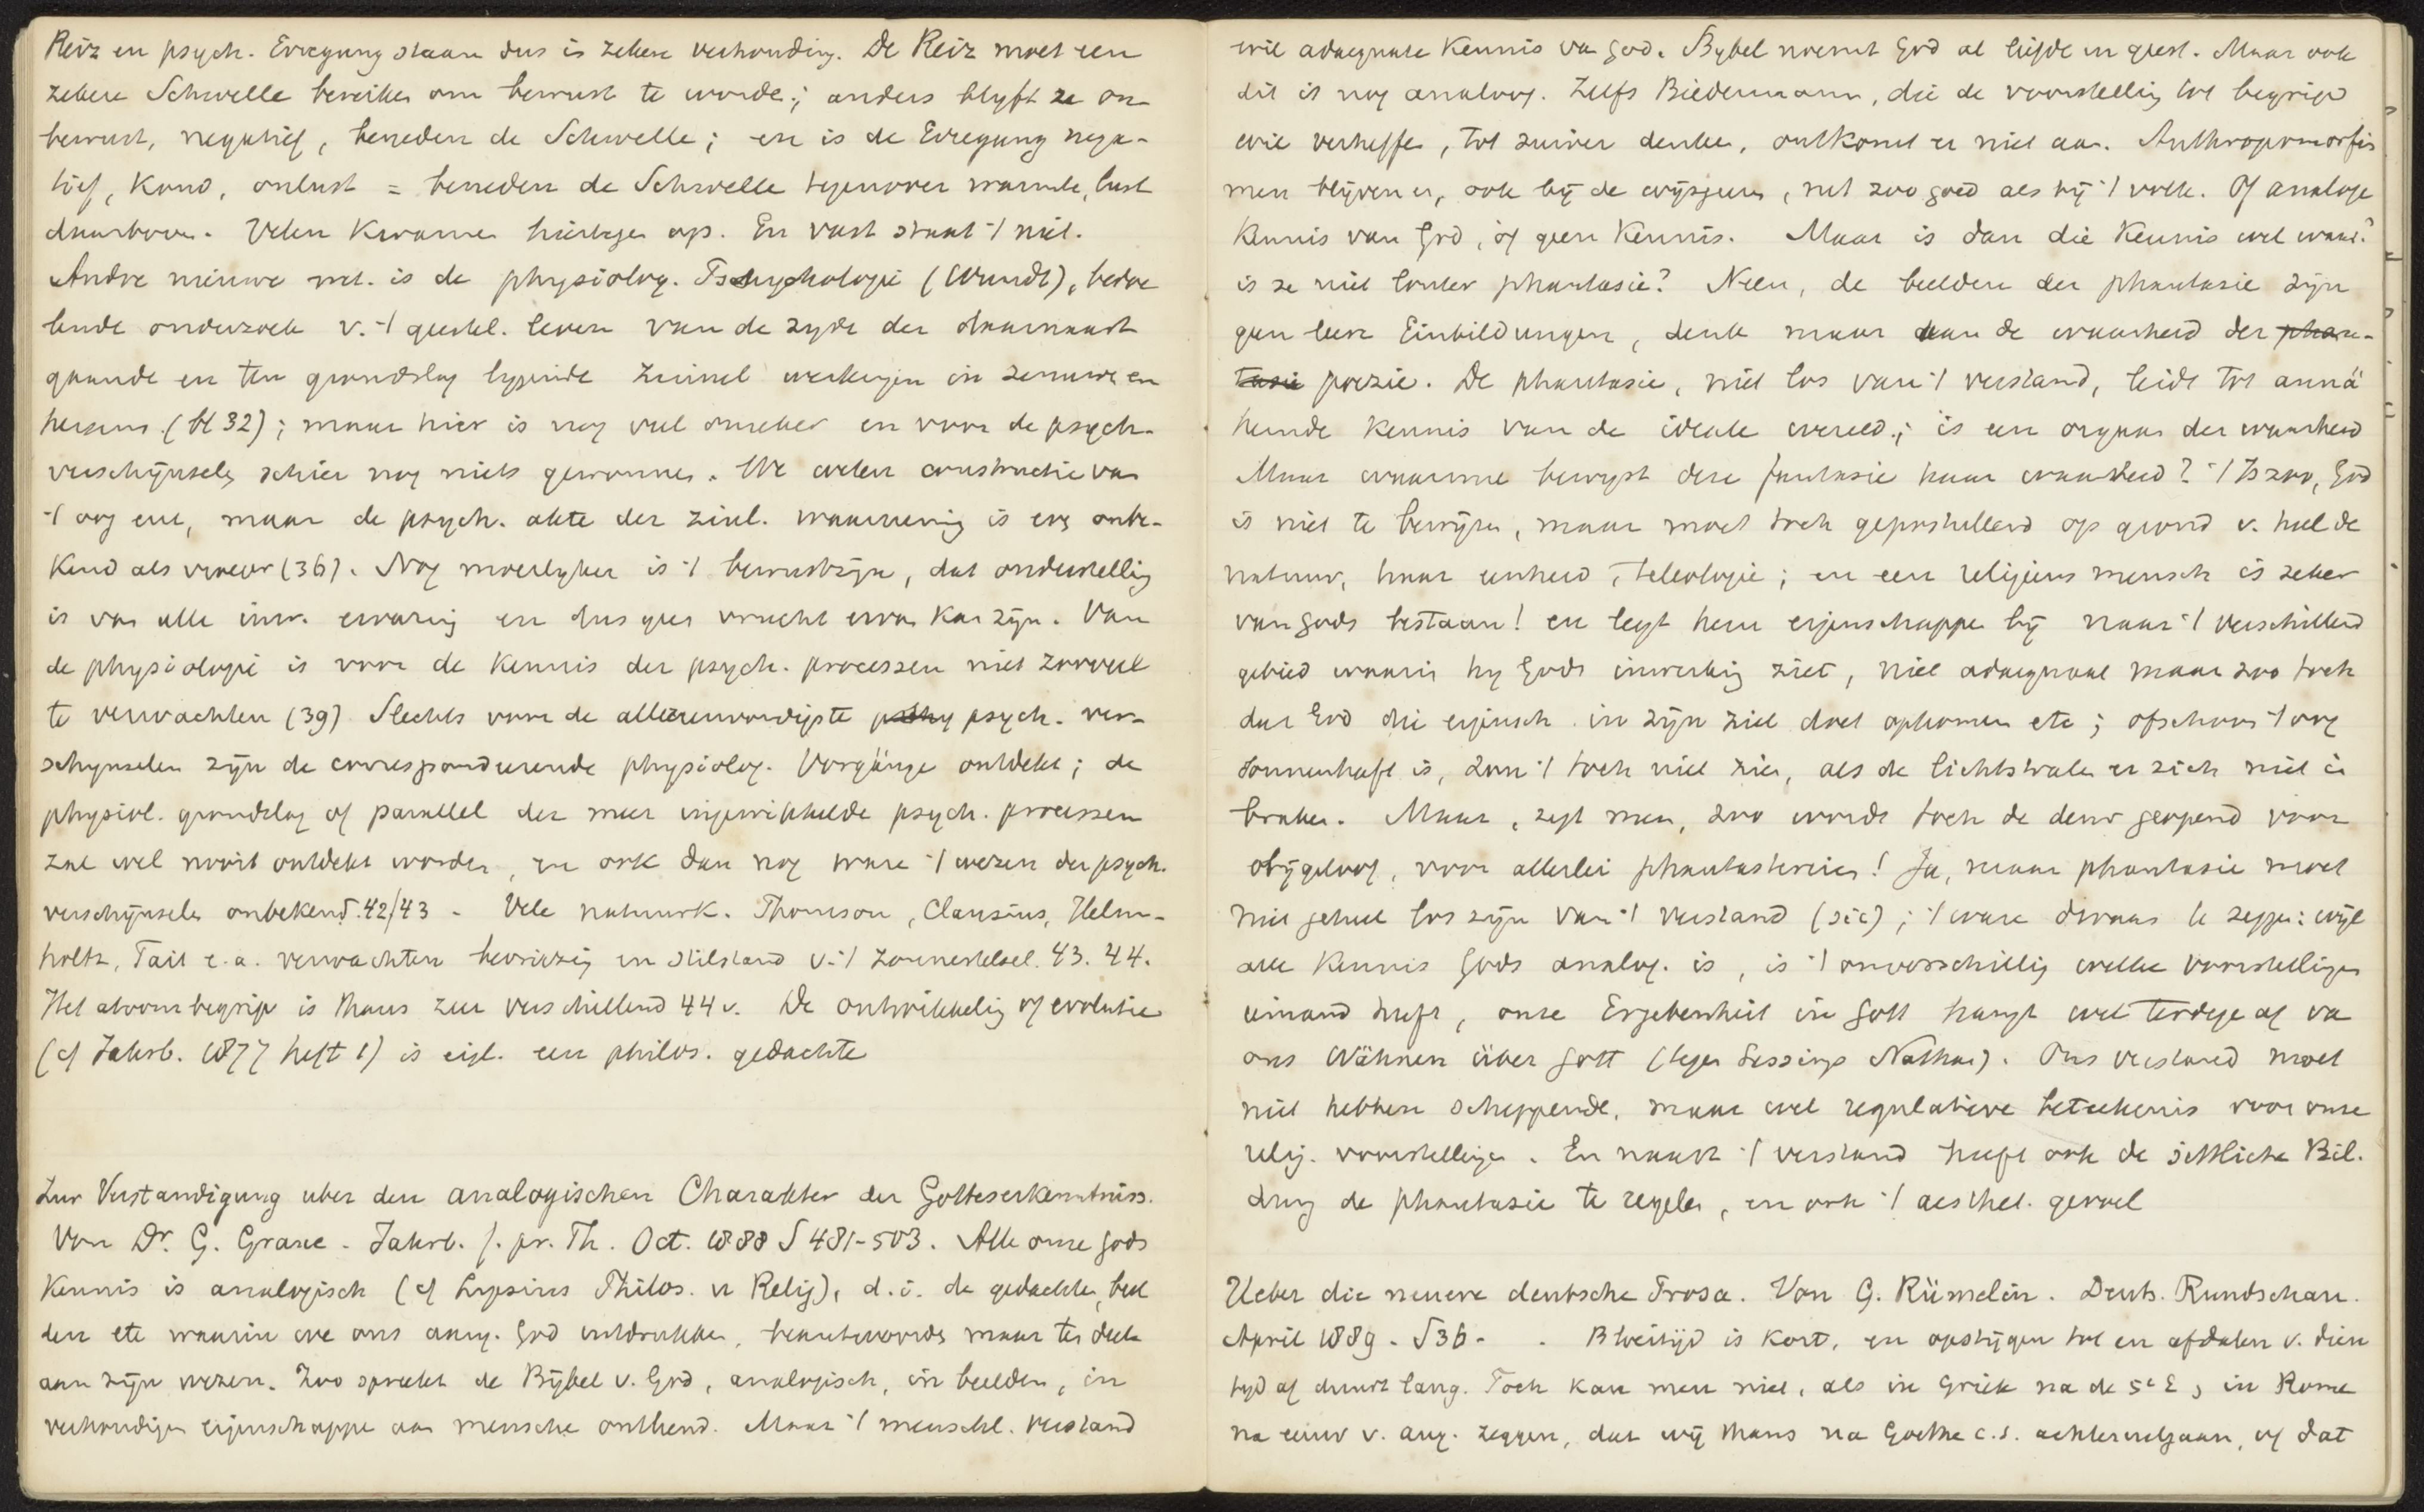 Reiz en psych. Erregung staan dus in zekere verhouding. De Reiz moet een
zekere Schwelle bereiken om bewust te worden; anders blyft ze on-
bewust, negatief, beneden de Schwelle; en is de Erregung nega-
tief, koud, onlust = beneden de Schwelle tegenover warmte, lust
daarboven. Velen kwamen hiertegen op. En vast staat 't niet.
Andre nieuwe met. is de physiolog. Psychologie (Wundt), bedoe
lende onderzoek v. 't geestel. leven van de zyde der daarnaast
gaande en ten grondslag liggende zinnel. werkingen in zenuwen en
hersens (bl 32); maar hier is nog veel onzeker en voor de psych.
verschijnselen schier nog niets gewonnen. We weten constructie van
't oog enz, maar de psych. akte der zinl. waarneming is even onbe-
kend als vroeger (36). Nog moeilyker is 't bewustzijn, dat onderstelling
is van alle inw. ervaring en dus geen vrucht ervan kan zijn. Van
de physiologie is voor de kennis der psych. processen niet zooveel
te verwachten (39) Slechts voor de allereenvoudigste psych. ver-
schynselen zijn de correspondeerende physiolog. Vorgänge ontdekt; de
physiol. grondslag of parallel der meer ingewikkelde psych. processen
zal wel nooit ontdekt worden, en ook dan nog ware 't wezen der psych.
verschijnselen onbekend. 42/43 - Vele natuurk. Thomson, Clausius, Helm-
holtz, Tait e.a. verwachten bevriezing en stilstand v. 't zonnestelsel. 43. 44.
Het atoombegrip is thans zeer verschillend 44 v. De ontwikkeling of evolutie
(cf Jahrb. 1877 heft 1) is eigl. een philos. gedachte
Zur Verstandigung uber den analogischen Charakter der Gotteserkenntniss.
Von Dr. G. Graue - Jahrb. f. pr. Th. Oct. 1888 S 481-503. Alle onze gods
kennis is analogisch (cf Lipsius Philos. u Relig), d.i. de gedachten, beel
den etc waarin we ons aang. God uitdrukken, beantwoorden maar ten deele
aan zijn wezen. Zoo spreekt de Bijbel v. God, analogisch, in beelden, in
verhoudingen eigenschappen aan menschen ontleend. Maar 't menschl. verstand
wil adaequate kennis van God. Bybel noemt God al liefde en geest. Maar ook
dit is nog analoog. Zelfs Biedermann, die de voorstelling tot begrip
wil verheffen, tot zuiver denken, ontkomt er niet aan. Anthropomorfis
men blijven er, ook bij de wijsgeeren, net zoo goed als bij 't volk. Of analoge
kennis van God, of geen kennis. Maar is dan die kennis wel waar?
is ze niet louter phantasie? Neen, de beelden der phantasie zijn
geen leere Einbildungen, denk maar aan de waarheid der phan-
tasie poezie. De phantasie, niet los van 't verstand, leidt tot annä
hernde kennis van de ideale wereld; is een orgaan der waarheid
Maar waarmee bewyst deze fantasie haar waarheid? 't Is zoo, God
is niet te bewijzen, maar moet toch gepostuleerd op grond v. heel de
natuur, haar eenheid, teleologie; en een religieus mensch is zeker
van Gods bestaan! en legt hem eigenschappen bij naar 't verschillend
gebied waarin hy Gods inwerking ziet, niet adaequaat maar zoo toch
dat God die eigensch. in zijn ziel doet opkomen etc; ofschoon 't oog
sonnenhaft is, zou 't toch niet zien, als de lichtstralen er zich niet in
braken. Maar, zegt men, zoo wordt toch de deur geopend voor
bijgeloof, voor allerlei phantastereien! Ja, maar phantasie moet
niet geheel los zijn van 't verstand (sic); 't ware dwaas te zeggen: wijl
alle kennis Gods analog. is, is 't onverschillig welke voorstellingen
iemand heeft, onze Ergebenheit in Gott hangt wel terdege af van
ons Wähnen über Gott (tegen Lessings Nathan). Ons verstand moet
niet hebben scheppende, maar wel regulatieve beteekenis voor onze
relig. voorstellingen. En naast 't verstand heeft ook de sittliche Bil-
dung de phantasie te regelen, en ook 't aesthet. gevoel
Ueber die neuere deutsche Prosa. Von G. Rümelin. Deuts. Rundschau.
April 1889. S 36- . Bloeitijd is kort, en opstijgen tot en afdalen v. dien
tyd af duurt lang. Toch kan men niet, als in Griek na de 5e E, in Rome
na eeuw v. Aug. zeggen, dat wij thans na Goethe c.s. achteruitgaan, of dat